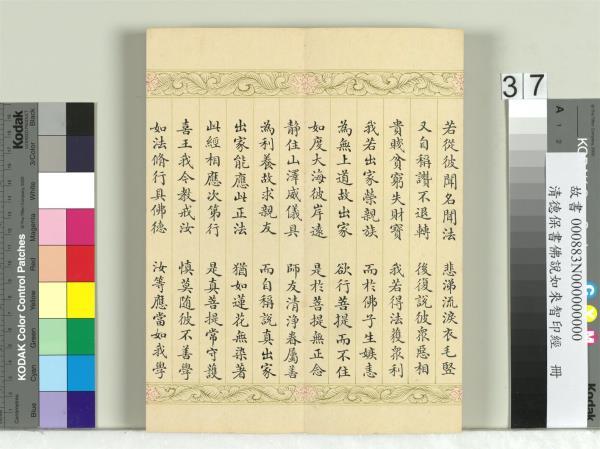 若從彼聞名聞法 悲涕流淚衣毛竪
又自稱讚不退轉 後復說彼眾惡相
貴賤貧窮失財寶 我若得法獲眾利
我若出家榮親族 而於佛子生嫉恚
為無上道故出家 欲行菩提而不住
如度大海彼岸遠 是於菩提無正念
静住山澤威儀具 師友清淨眷屬善
為利養故求親友 而自稱說真出家
出家能應此正法 猶如蓮花無染著
此經相應次第行 是真菩提常守護
喜王我今教戒汝 慎莫隨彼不善學
如法脩行具佛德 汝等應當如我學
37
故書 000883N000000000
清德保書佛說如來智印經 冊
Kodak
A 1 2
C Y M
Kodak
KODAK Color Control Patches
Black
3/Color
White
Magenta
Red
Yellow
Green
Cyan
Blue